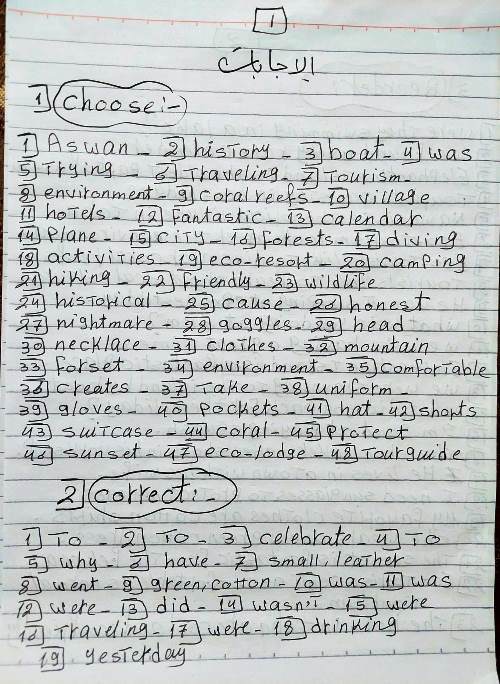 1
الإجابات
1 Choose:-
1 Aswan - 2 history - 3 boat - 4 was
5 Trying - 6 Traveling - 7 Tourism -
8 environment - 9 coral reefs - 10 village
11 hotels - 12 Fantastic - 13 calendar
14 Plane - 15 CiTY - 16 forests - 17 diving
18 activities - 19 eco-resort - 20 camping
21 hiking - 22 Friendly - 23 wildlife
24 historical - 25 cause - 26 honest
27 nightmare - 28 goggles - 29 head
30 necklace - 31 clothes - 32 mountain
33 forset - 34 environment - 35 comfortable
36 creates - 37 Take - 38 uniform -
39 gloves - 40 Pockets - 41 hat - 42 shorts
43 suitcase - 44 coral - 45 Protect
46 sunset - 47 eco-lodge - 48 Tourguide
2 Correct:-
1 To - 2 To - 3 celebrate - 4 To
5 why - 6 have - 7 small, leather
8 went - 9 green, cotton - 10 was - 11 was
12 were - 13 did - 14 wasn't - 15 were
16 Traveling - 17 were - 18 drinking
19 yesterday